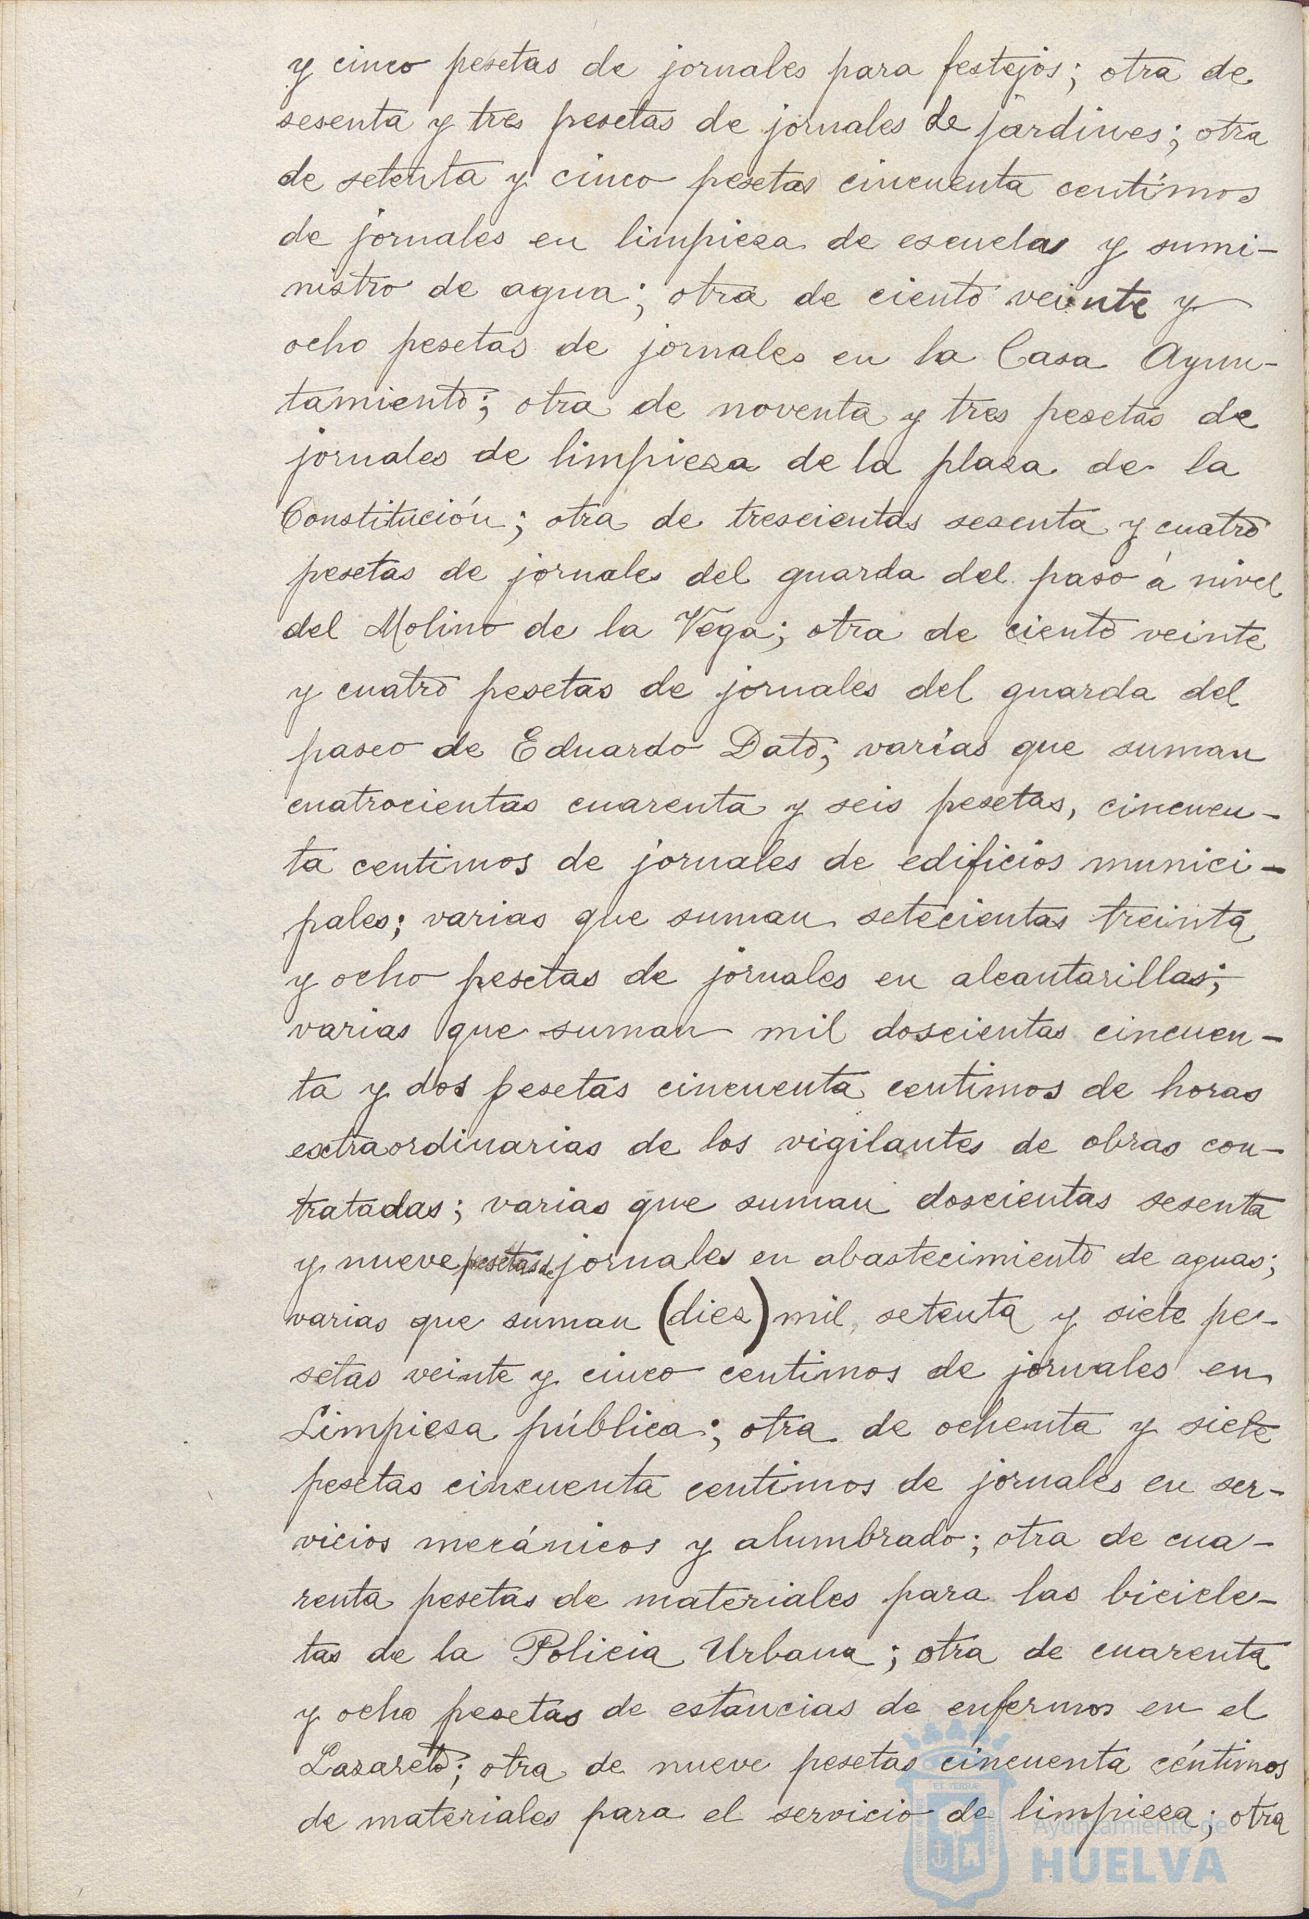 y cinco pesetas de jornales para festejos; otra de
sesenta y tres pesetas de jornales de jardines; otra
de setenta y cinco pesetas cincuenta centimos
de jornales en limpieza de escuelas y sumi-
nistro de agua; otra de ciento veinte y
ocho pesetas de jornales en la Casa Ayun-
tamiento; otra de noventa y tres pesetas de
jornales de limpieza de la plaza de la
Constitución; otra de trescientas sesenta y cuatro
pesetas de jornales del guarda del paso á nivel
del Molino de la Vega; otra de ciento veinte
y cuatro pesetas de jornales del guarda del
paseo de Eduardo Dato; varias que suman
cuatrocientas cuarenta y seis pesetas, cincuen-
ta centimos de jornales de edificios munici-
pales; varias que suman setecientas treinta
y ocho pesetas de jornales en alcantarillas;
varias que suman mil doscientas cincuen-
ta y dos pesetas cincuenta centimos de horas
extraordinarias de los vigilantes de obras con-
tratadas; varias que suman doscientas sesenta
y nueve pesetas de jornales en abastecimiento de aguas;
varias que suman (diez) mil, setenta y siete pe-
setas veinte y cinco centimos de jornales en
Limpiesa pública; otra de ochenta y siete
pesetas cincuenta centimos de jornales en ser-
vicios mecánicos y alumbrado; otra de cua-
renta pesetas de materiales para las bicicle-
tas de la Policia Urbana; otra de cuarenta
y ocho pesetas de estancias de enfermos en el
Lazareto; otra de nueve pesetas cincuenta céntimos
de materiales para el servicio de limpieza; otra
Ayuntamiento de
HUELVA